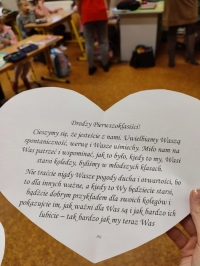 Drodzy Pierwszoklasiści!
Cieszymy się, że jesteście z nami. Uwielbiamy Waszą
spontaniczność, werwę i Wasze uśmiechy. Miło nam na
Was patrzeć i wspominać, jak to było, kiedy to my, Wasi
starsi koledzy, byliśmy w młodszych klasach.
Nie traćcie nigdy Waszej pogody ducha i otwartości, bo
to dla innych ważne, a kiedy to Wy będziecie starsi,
bądźcie dobrym przykładem dla swoich kolegów i
pokazujcie im, jak ważni dla Was są i jak bardzo ich
lubicie – tak bardzo jak my teraz Was